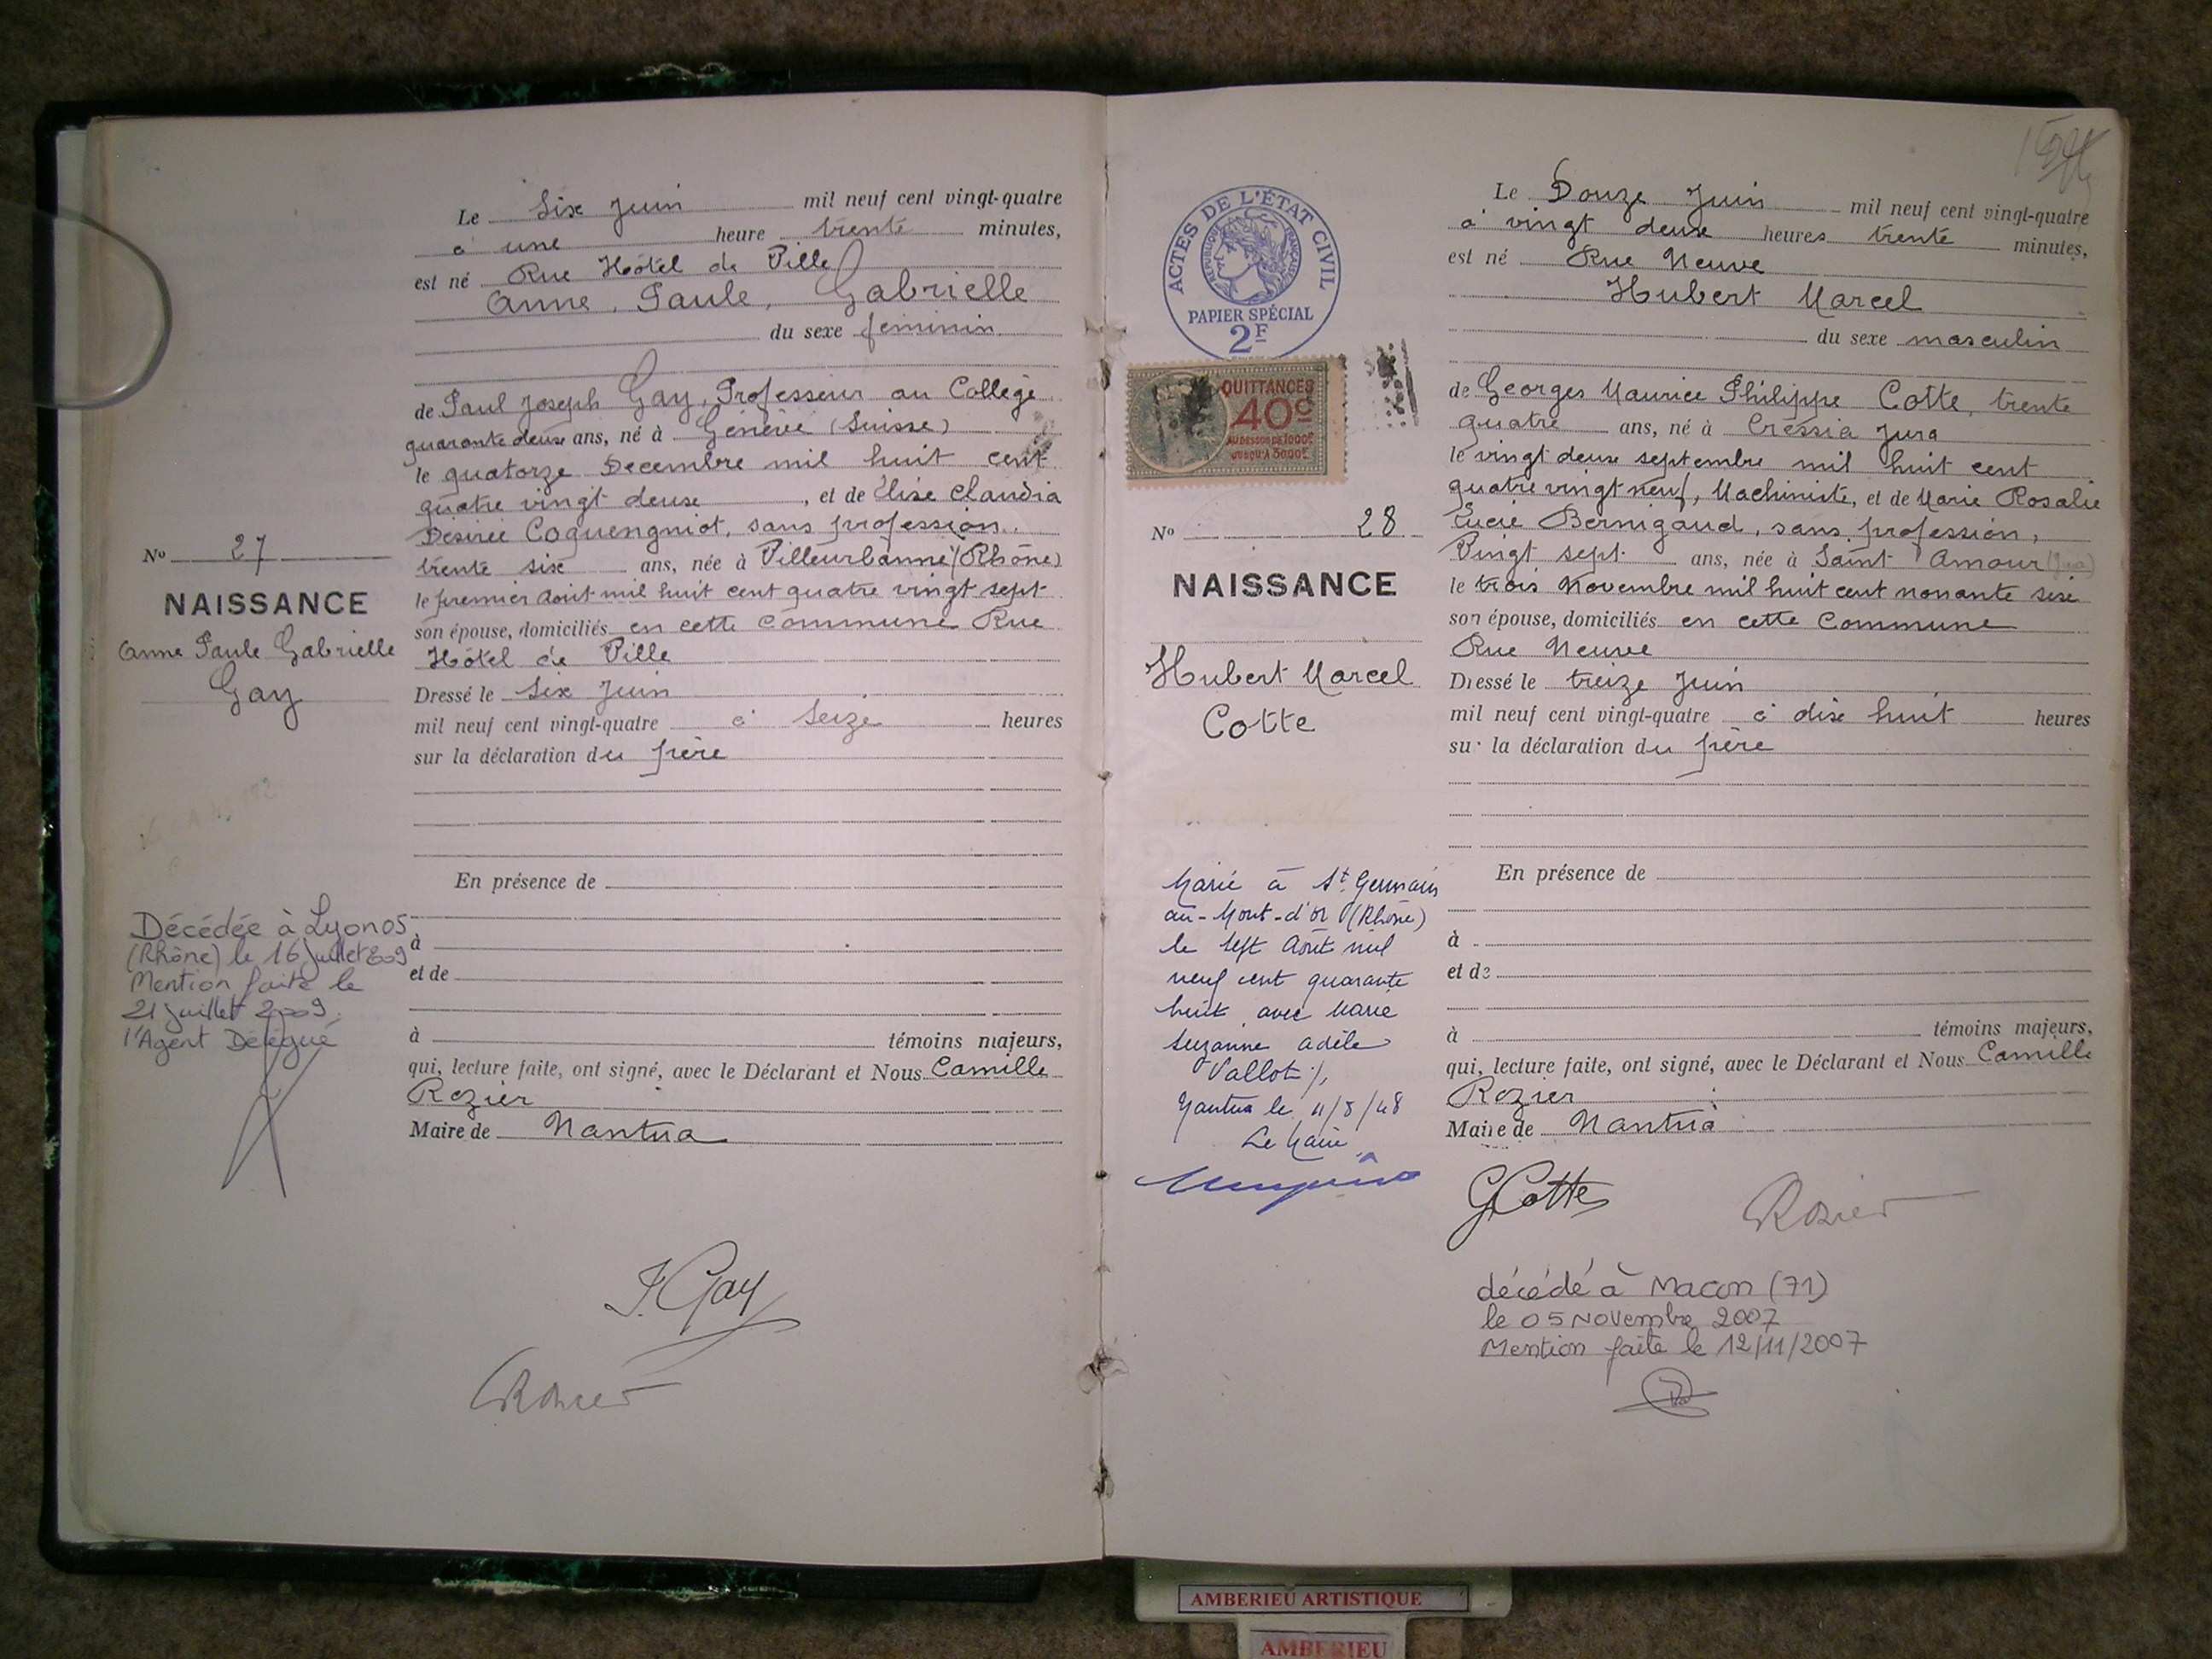 Le Six Juin mil neuf cent vingt-quatre
à une heure trente minutes,
est né Rue Hôtel de Ville
Anne, Paule, Gabrielle
du sexe féminin
de Paul Joseph Gay, Professeur au Collège
quarante deux ans, né à Génève (Suisse)
le quatorze Decembre mil huit cent
quatre vingt deux, et de Elise Claudia
Désirée Coquengniot, sans profession.
trente six ans, née à Villeurbanne (Rhône)
le premier Août mil huit cent quatre vingt sept
son épouse, domiciliés en cette Commune Rue
Hôtel de Ville
Dressé le Six Juin
mil neuf cent vingt-quatre à Seize heures
sur la déclaration du père
En présence de
à
et de
à témoins majeurs,
qui, lecture faite, ont signé, avec le Déclarant et Nous Camille
Rozier
Maire de Nantua
No 27
NAISSANCE
Anne Paule Gabrielle
Gay
Décédée à Lyon 05
(Rhône) le 16 juillet 2009
Mention faite le
21 juillet 2009.
l'Agent Délégué
Gay
Rozier
ACTES DE L'ÉTAT CIVIL
RÉPUBLIQUE FRANÇAISE
PAPIER SPÉCIAL
2F
QUITTANCES
40c
AU DESSUS DE 1000F
JUSQU'A 3000F
No 28
NAISSANCE
Hubert Marcel
Cotte
Marié à St Germain
au-Mont-d'Or (Rhône)
le sept Août mil
neuf cent quarante
huit avec Marie
Suzanne Adèle
Vallot ./.
Nantua le 11/8/48
Le Maire
Le Douze Juin mil neuf cent vingt-quatre
à vingt deux heures trente minutes,
est né Rue Neuve
Hubert Marcel
du sexe masculin
de Georges Maurice Philippe Cotte, trente
quatre ans, né à Cressia Jura
le vingt deux septembre mil huit cent
quatre vingt neuf, Machiniste, et de Marie Rosalie
Lucie Bernigaud, sans profession,
Vingt sept ans, née à Saint Amour (Jura)
le trois Novembre mil huit cent nonante six
son épouse, domiciliés en cette Commune
Rue Neuve
Dressé le treize Juin
mil neuf cent vingt-quatre à dix huit heures
sur la déclaration du père
En présence de
à
et de
à témoins majeurs,
qui, lecture faite, ont signé, avec le Déclarant et Nous Camille
Rozier
Maire de Nantua
G Cotte
Rozier
décédé à Macon (71)
le 05 Novembre 2007
Mention faite le 12/11/2007
AMBERIEU ARTISTIQUE
AMBERIEU